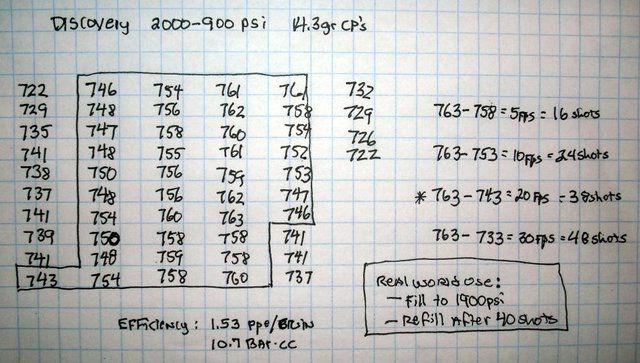 Discovery 2000-900 psi 14.3gr CP's
722 746 754 761 761 732
729 748 756 762 758 729
735 747 758 760 754 726
741 748 755 761 752 722
738 750 756 759 753
737 748 756 762 747
741 754 760 763 746
739 750 758 758 741
741 748 759 758 741
743 754 758 760 737
763-758 = 5fps = 16 shots
763-753 = 10fps = 24 shots
* 763-743 = 20 fps = 38 shots
763-733 = 30fps = 48 shots
Efficiency: 1.53 fpe/
10.7 Bar·cc
Real World Use:
- Fill to 1900psi
- Refill After 40 shots